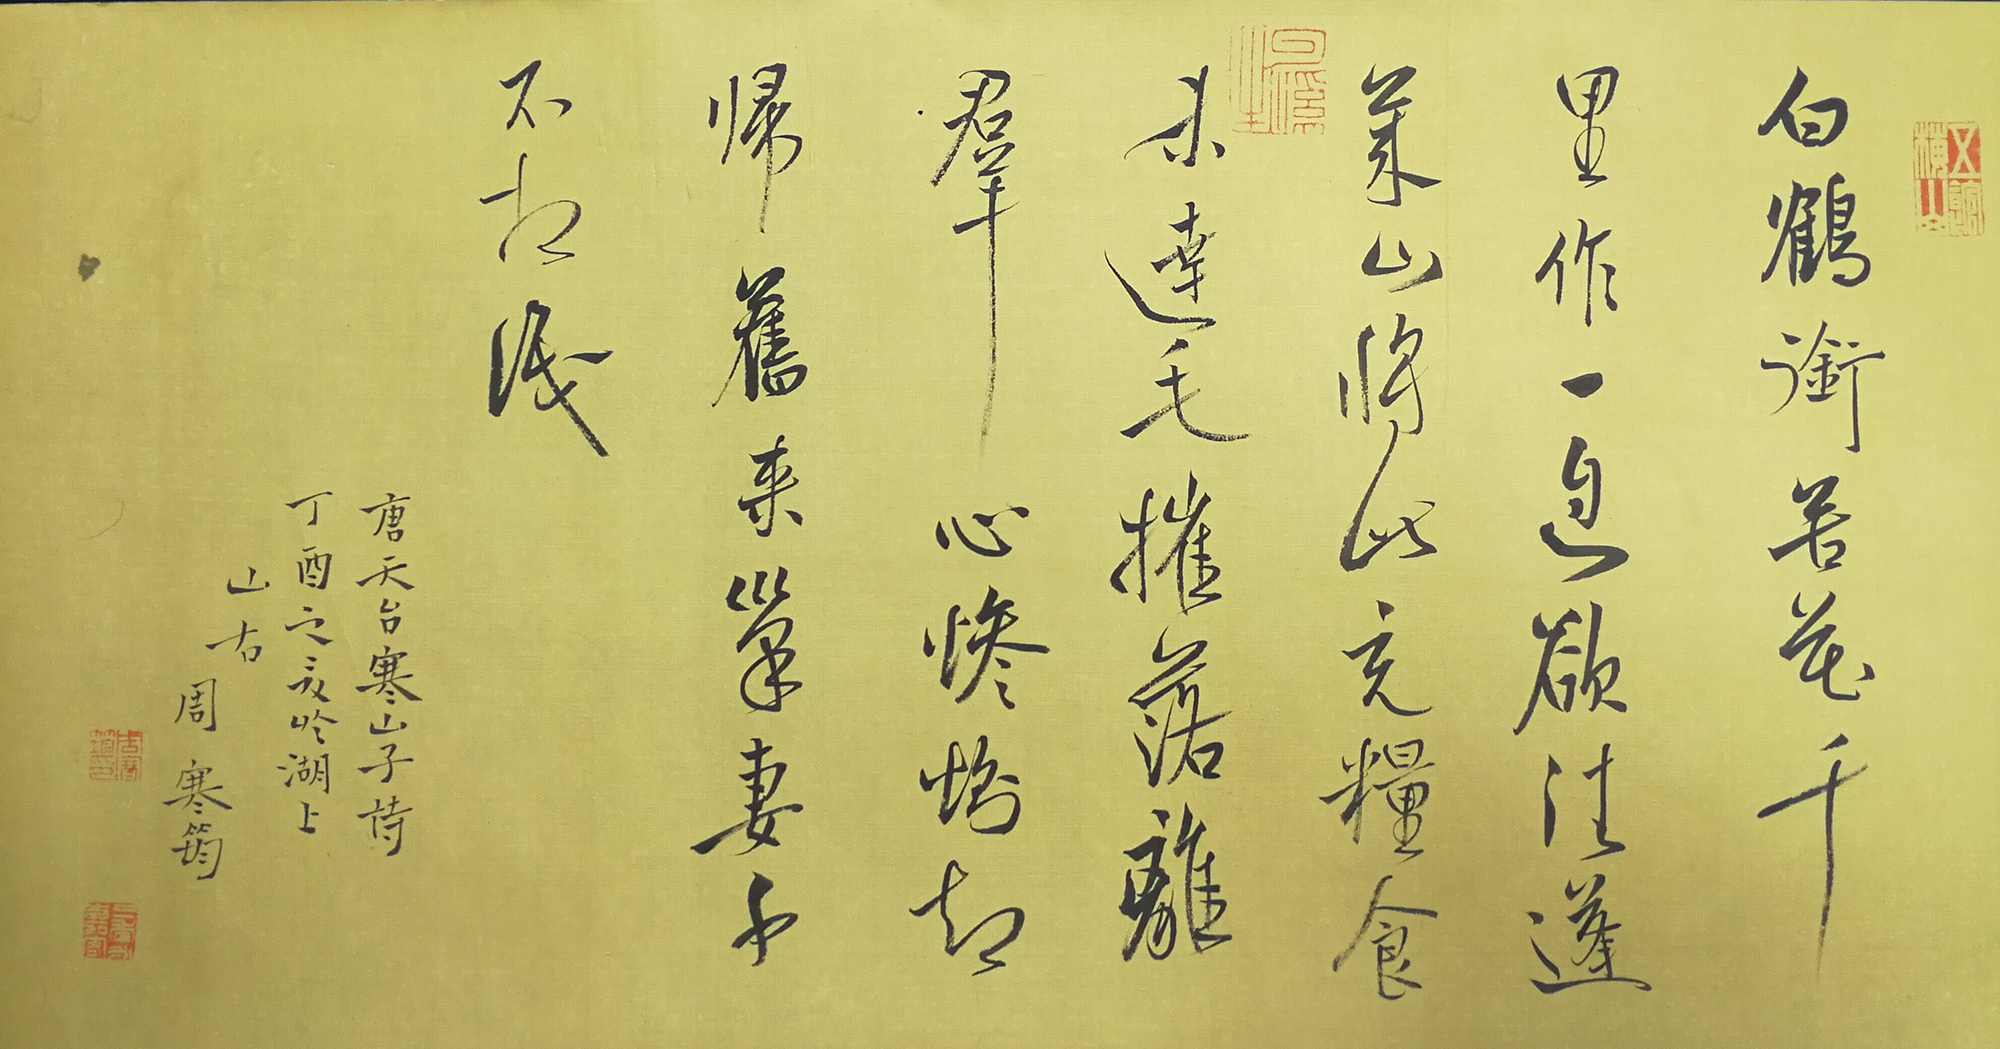 白鶴銜苦花千
里作一息欲往蓬
萊山將此充糧食
未達毛摧落離
羣心慘惻却
帰舊来巢妻子
不相識
唐天台寒山子詩
丁酉之夏於湖上
山右
周寒筠